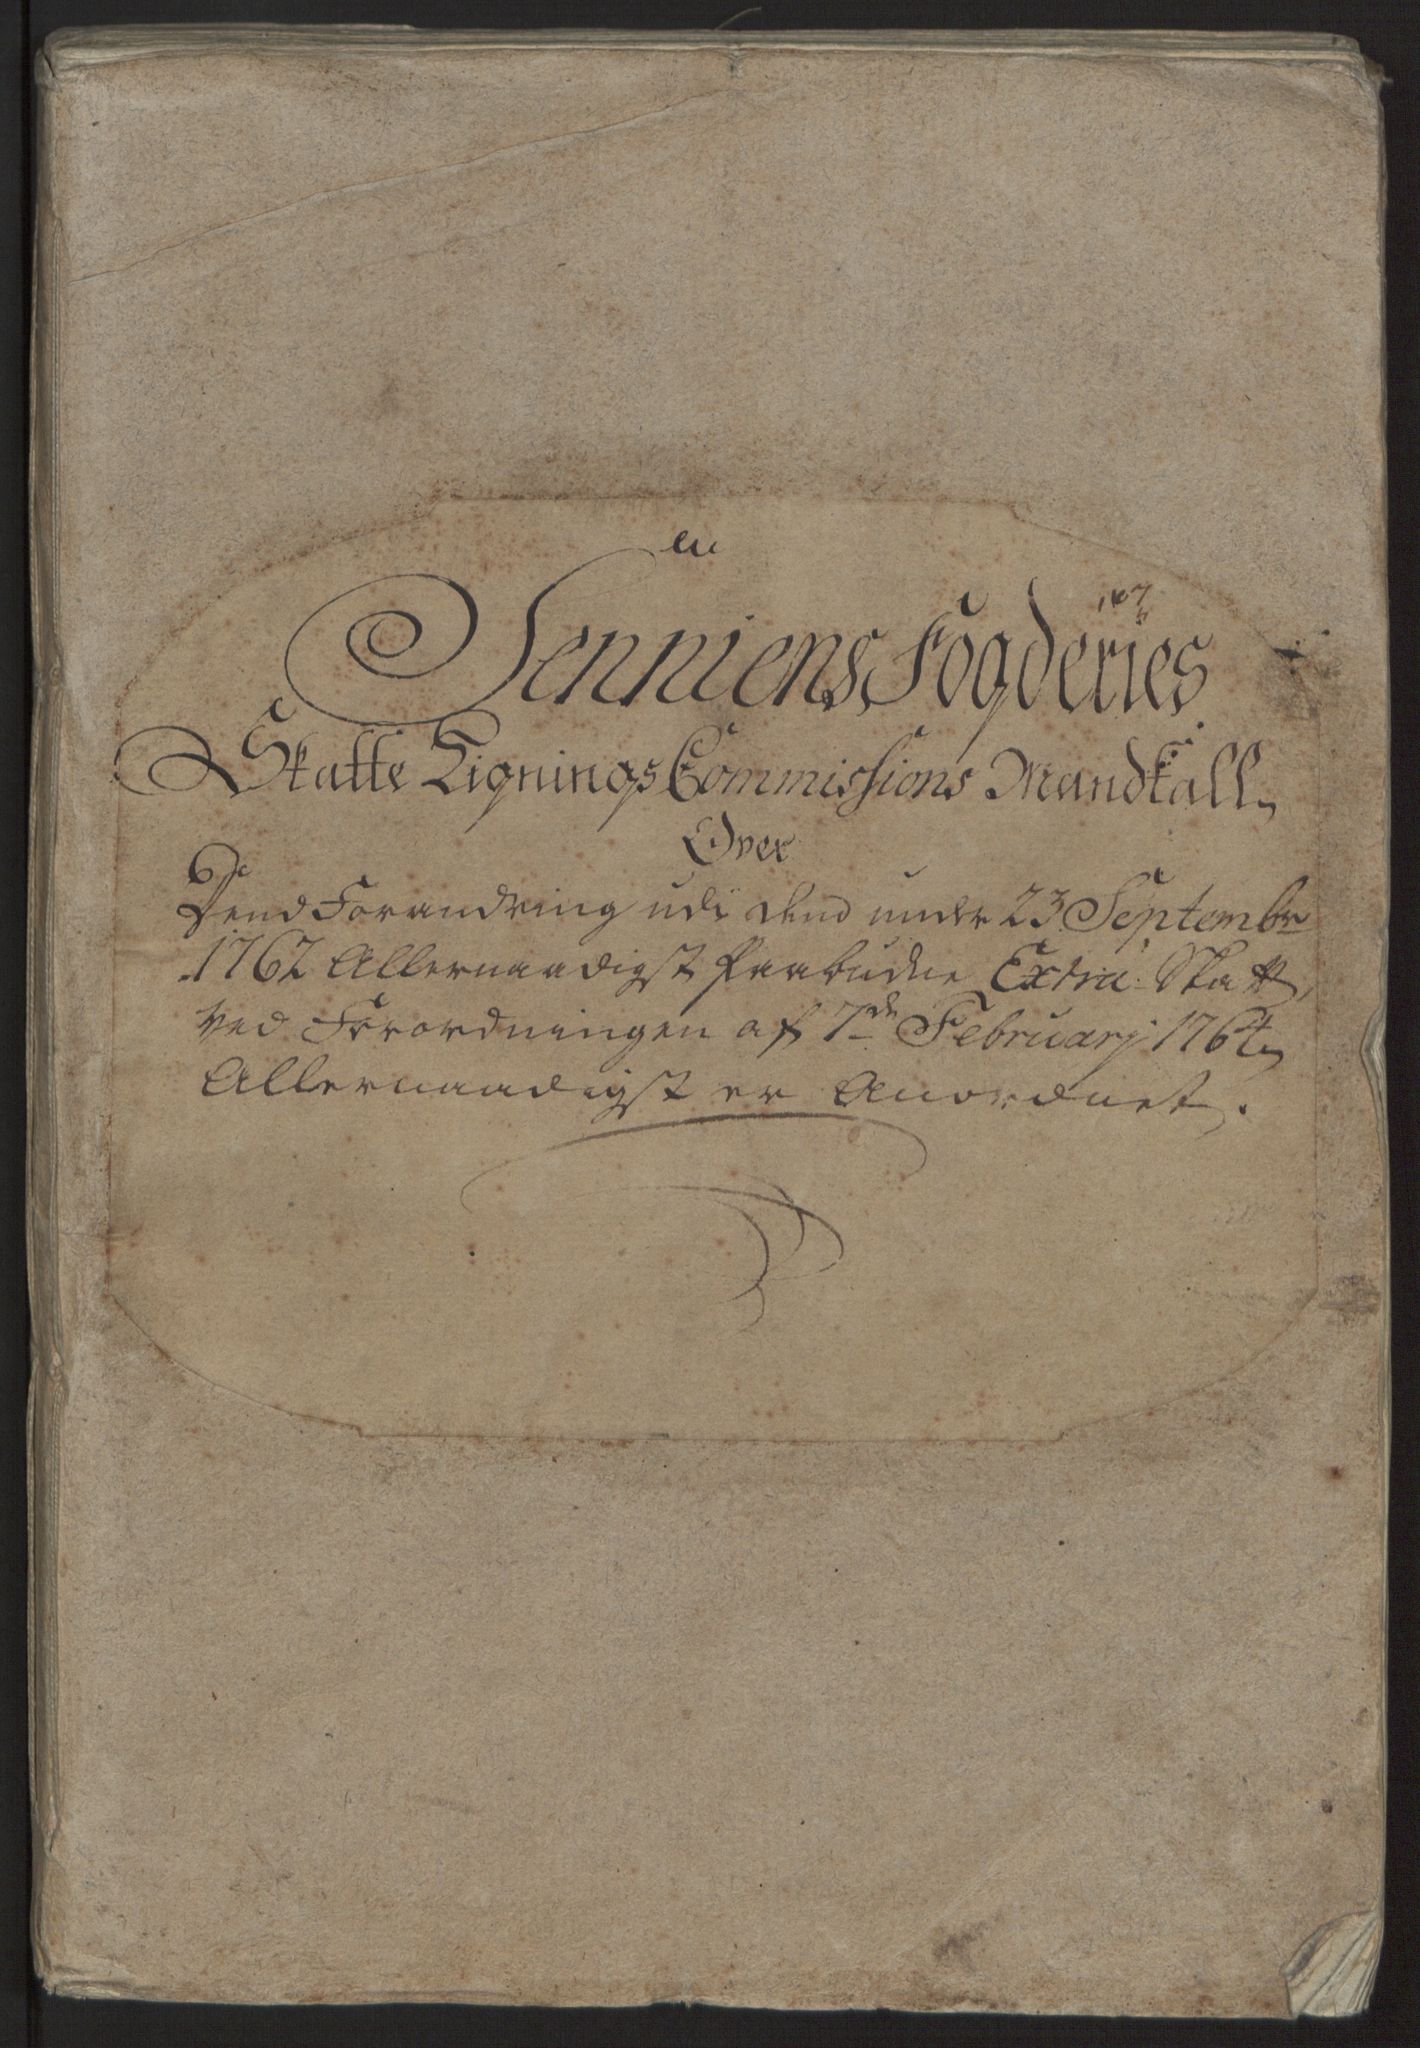 en
Senniens Fogderies
Skatte Lignings Commissions Mandtall
Over
Dend Forandring udi dend under 23 Septembr
1762 Allernaadigst Paabudne Extra Skatt,
ved Forordningen af 7de Februarj 1764
Allernaadigst er Anordnet.